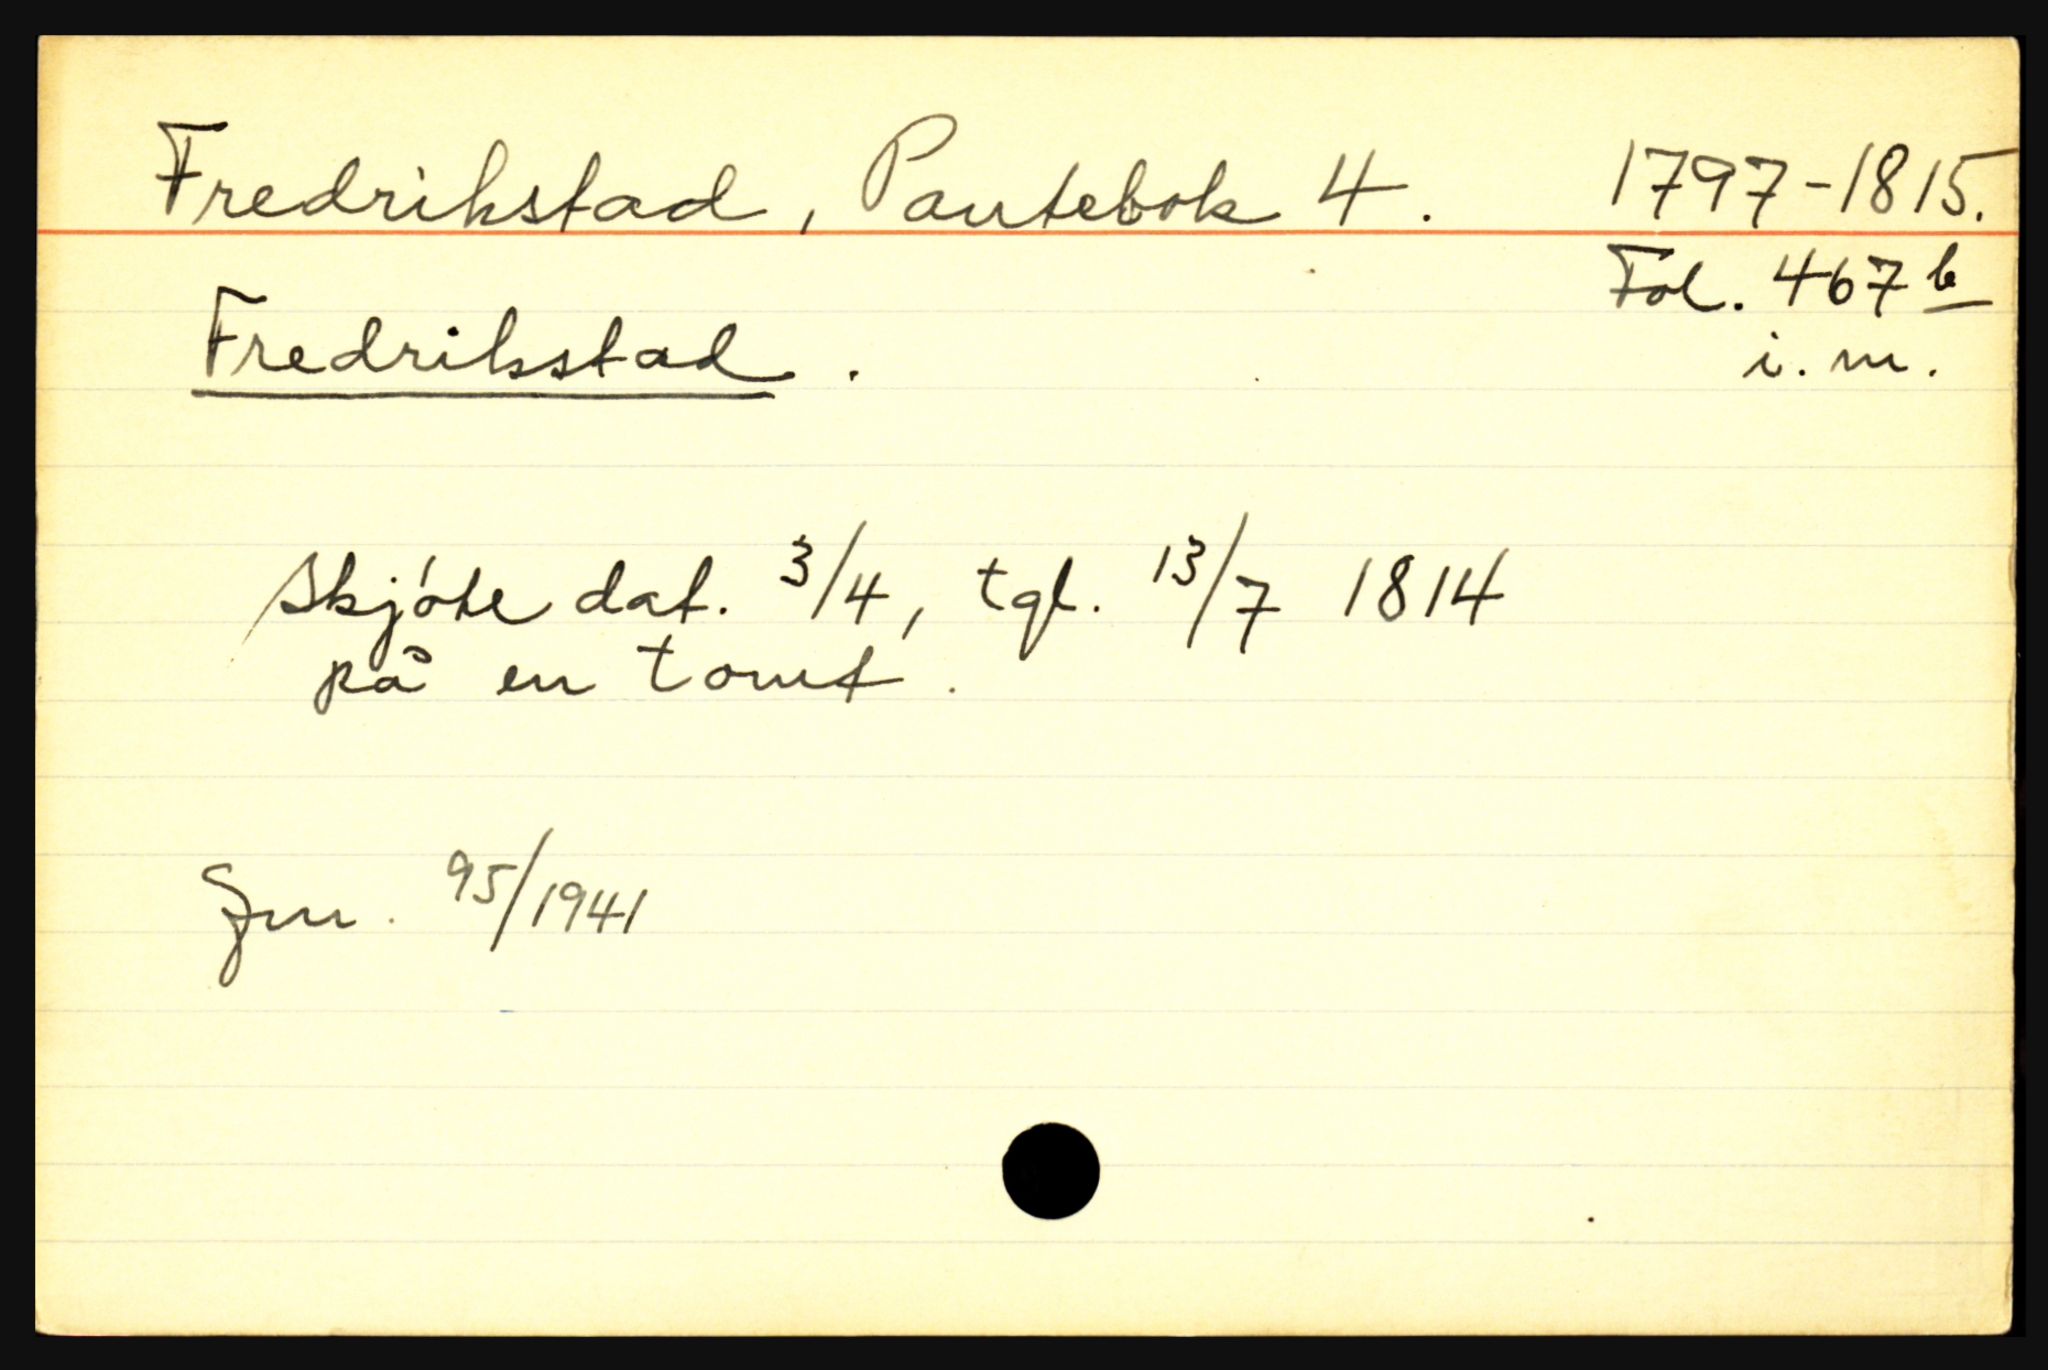 Fredrikstad, Pantebok 4. 1797-1815.
Fol. 467 b
Fredrikstad.
i. m.
Skjöte dat. 3/4, tgl. 13/7 1814
på en tomt.
Jnr. 95/1941